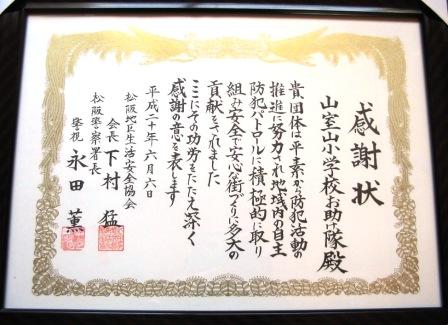 感謝状
山室山小学校お助け隊殿
貴団体は平素から防犯活動の
推進に努力され地域内の自主
防犯パトロールに積極的に取り
組み安全で安心な街づくりに多大の
貢献をされました
ここにその功労をたたえ深く
感謝の意を表します
平成二十年六月六日
松阪地区生活安全協会
会長 下村 猛
松阪警察署長
警視 永田 薫